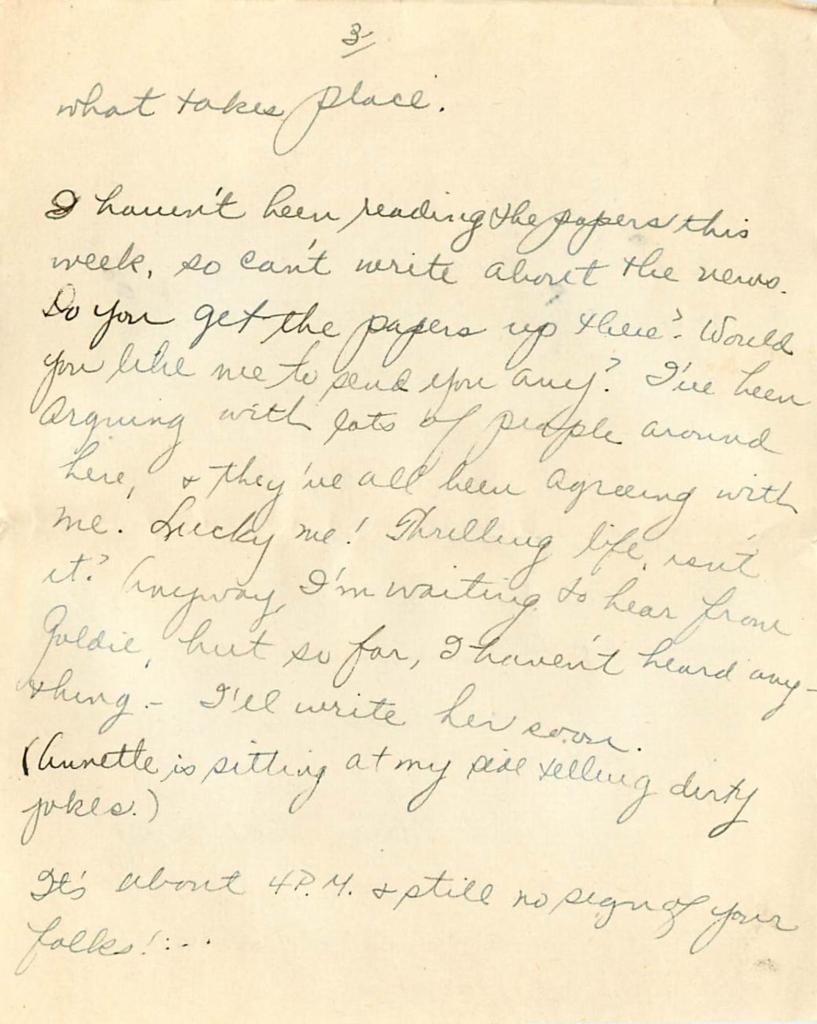 3/
what takes place.
I haven't been reading the papers this
week, so can't write about the news.
Do you get the papers up there? Would
you like me to send you any? I've been
arguing with lots of people around
here, & they've all been agreeing with
me. Lucky me! Thrilling life, isn't
it? Anyway, I'm waiting to hear from
Goldie, but so far, I haven't heard any-
thing. - I'll write her soon.
(Annette is sitting at my side telling dirty
jokes.)
It's about 4 P.M. & still no sign of your
folks!...